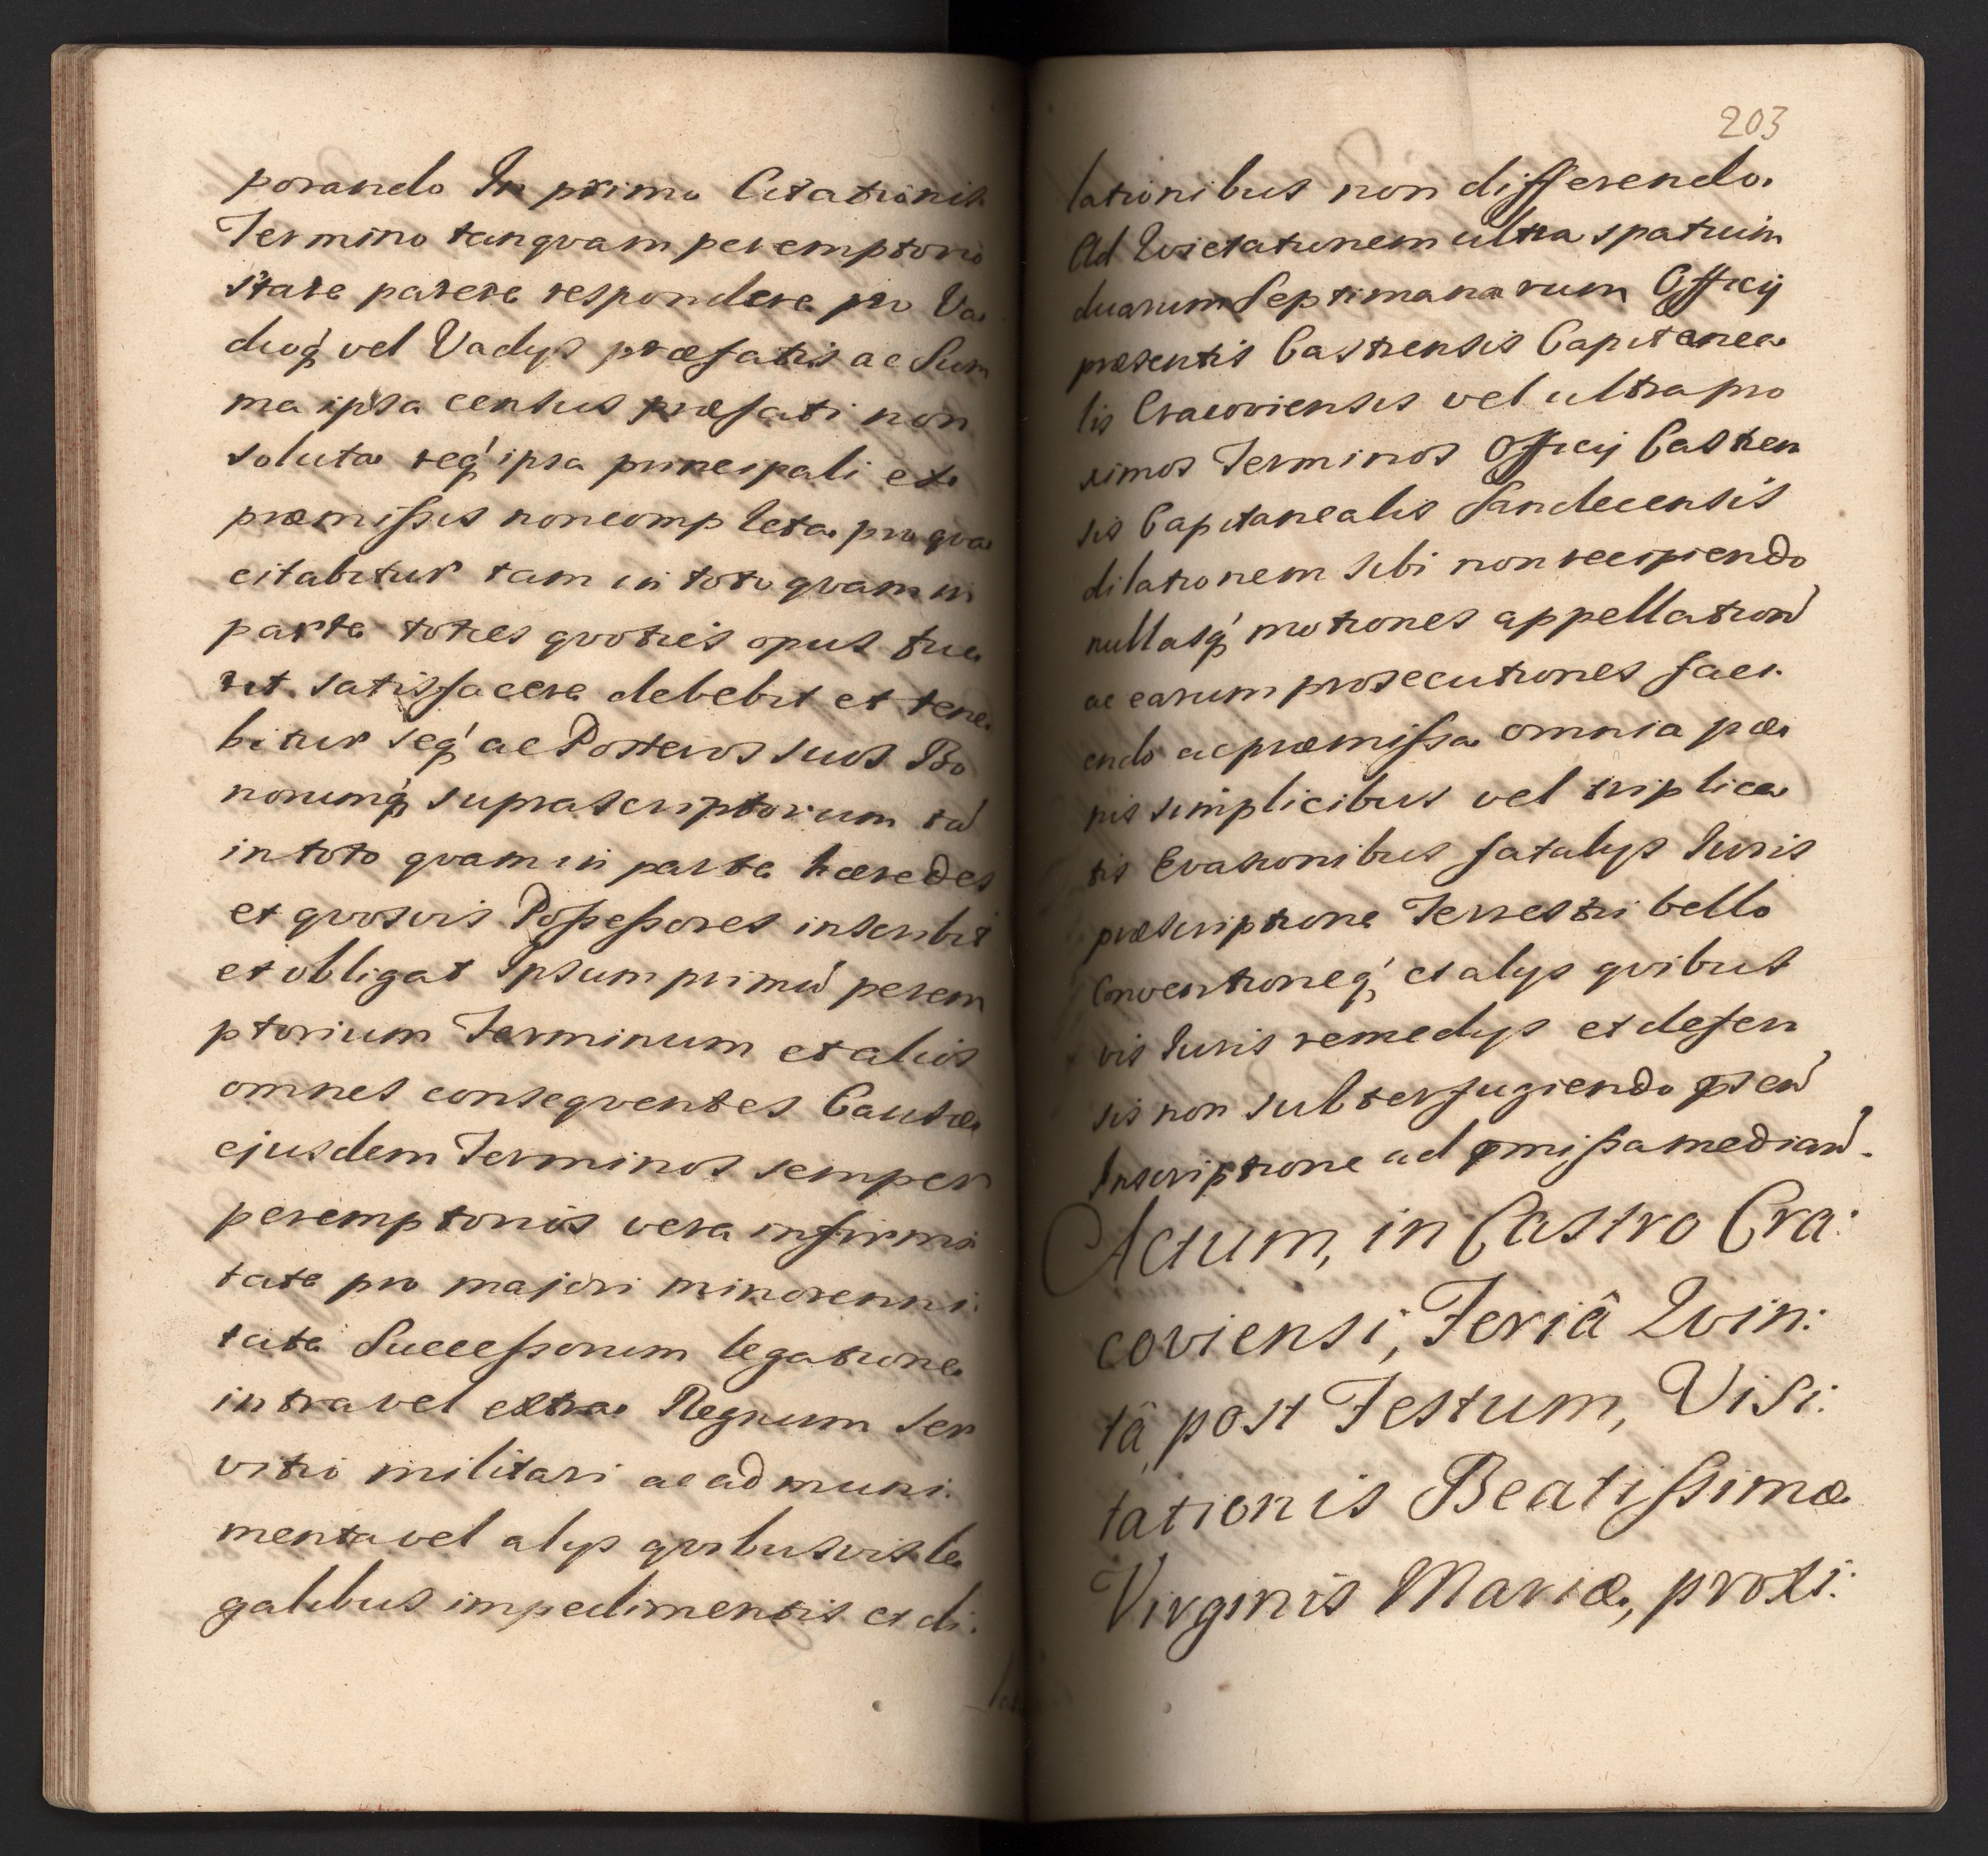 porando In primo Citationis
Termino tanqvam peremptorio
stare parere respondere pro Va
dioq́ vel Vadys præfatis ac Sum
ma ipsa census præfati non
soluta req́ ipsa principali et
præmissis non completa pro qva
citabitur tam in toto qvam in
parte toties qvoties opus fue
rit satisfacere debebit et tene
bitur seq́ ac Posteros suos Bo
norumq́ suprascriptorum tã
in toto qvam in parte hæredes
et qvosvis Possessores inscribit
et obligat Ipsum primũ perem
ptorium Terminum et alios
omnes conseqventes Causæ
ejusdem Terminos semper
peremptorios vera infirmi
tate pro majori minorenni
tate Successorum legatione
intra vel extra Regnum Ser
vitio militari ac ad muni.
menta vel alys qvibusvis le
galibus impedimentis et di.
203
lationibus non differendo.
Ad Qvietationem ultra spatium
duarum Septimanarum Officij
præsentis Castrensis Capitanea
lis Cracoviensis vel ultra pro
ximos Terminos Officij Castren
sis Capitanealis Sandecensis
dilationem sibi non recipiendo
nullasq́ motiones appellationũ
ac earum prosecutiones faci.
endo ac præmissa omnia pæ
nis simplicibus vel triplica
tis Evasionibus fatalys Iuris
præscriptione Terrestri bello
Conventioneq́ et alys qvibus
vis Iuris remedys et defen
sis non subterfugiendo psen̄
Inscriptione ad pmissa median̄.
Actum, in Castro Cra:
coviensi, Feriâ Qvin:
tâ post Festum, Visi:
tationis Beatissimæ
Virginis Mariæ, proxi: